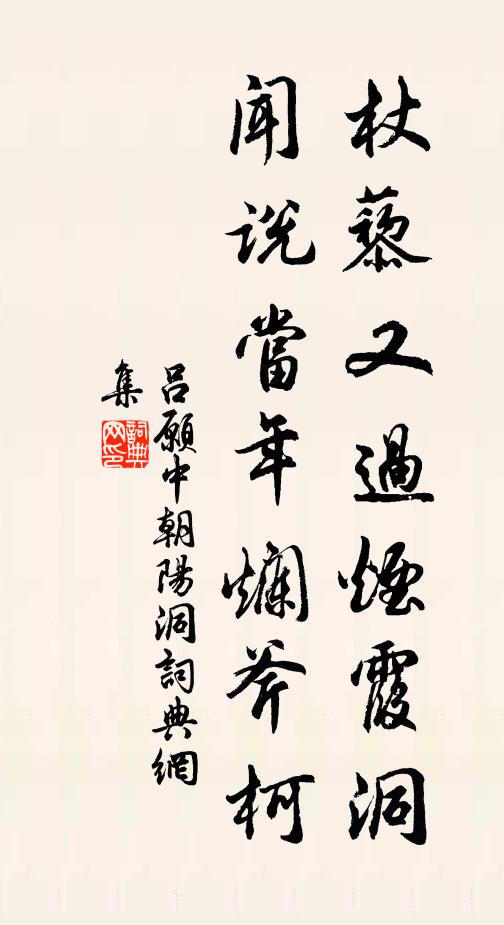 杖藜又過煙霞洞
聞說當年爛斧柯
呂願中朝陽洞詞典網
集
詞典網印